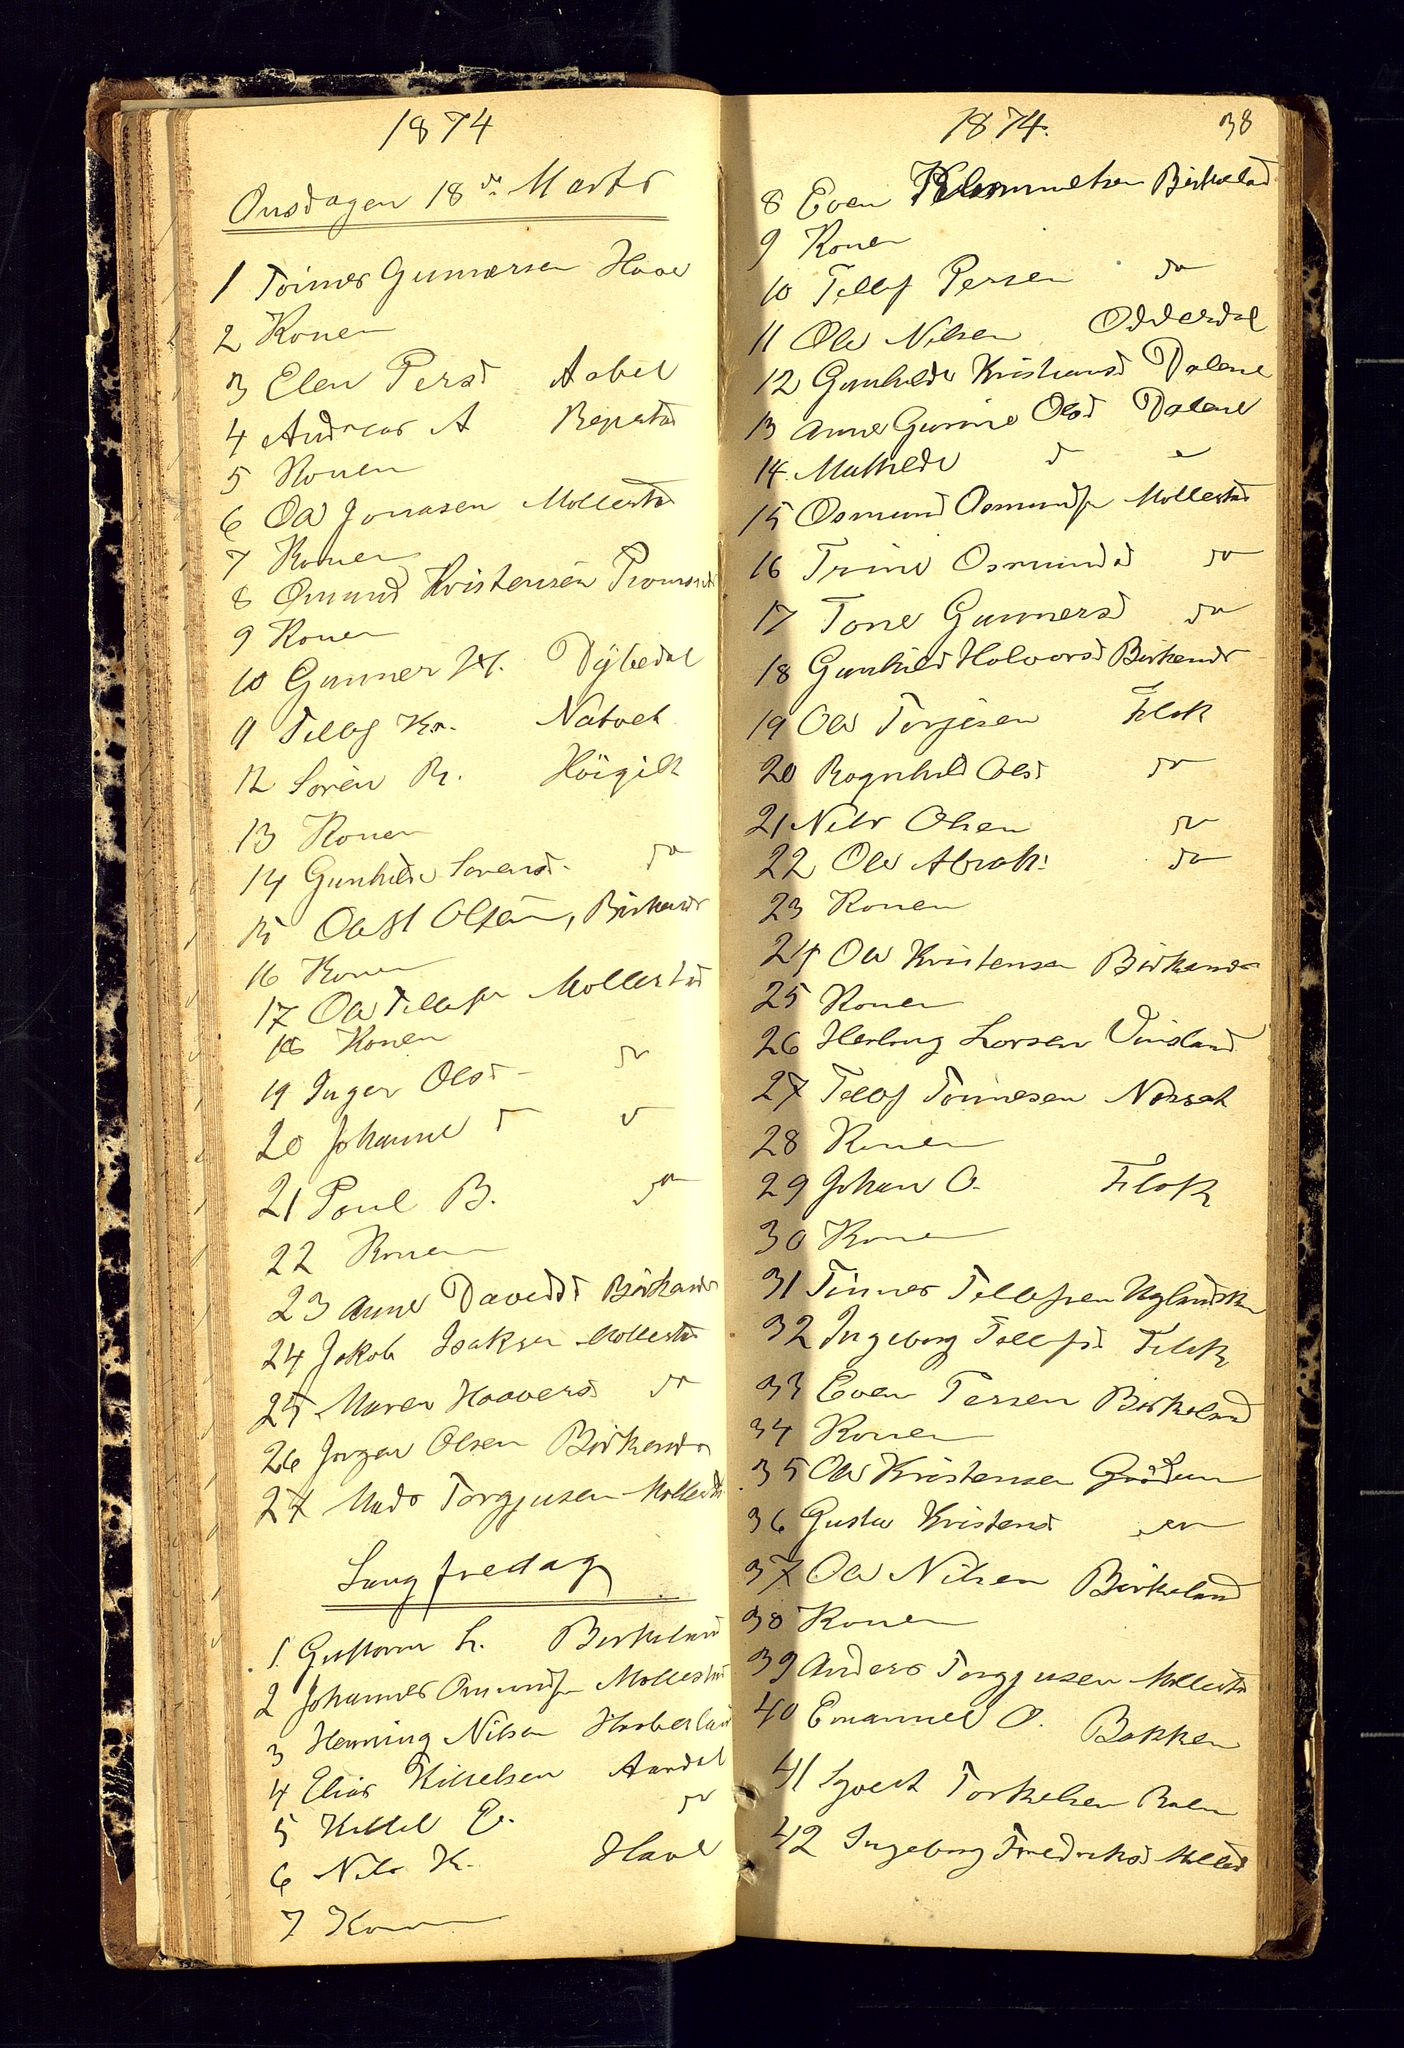 1874
Onsdagen 18de Marts
1 Tønnes Gunnersen Haae
2 Konen
3 Elen Persd Aabel
4 Andreas A Repstad
5 Konen
6 Ole Jonasen Mollestad
7 Konen
8 Omund Kristensen
9 Konen
10 Gunner H. Dybedal
11 Tellef Kr. Natvet
12 Sørén R. Höigilt
13 Konen
14 Gunhilde Sørensd. do
15 Ole St Olsen, Birkenes
16 Konen
17 Ole Tellefsen Mollestad
18 Konen
19 Inger Olsd do
20 Johanne d do
21 Poul B. do
22 Konen
23 Anne Davidsd Birkenes
24 Jakob Isaksen Mollestad
25 Maren Haaversd do
26 Jørgen Olsen Birkenes
27 Mads Torgjusen Mollestad
Langfredag
1 Gustava L. Birkeland
2 Johannes Omundsen Mollestad
3 Henning Nilsen Haaberland
4 Elias Kittelsen Aardal
5 Kittel E. do
6 Nils K. Haae
7 Konen
1874. 38
8 Even Birkeland
9 Konen
10 Tellef Persen do
11 Ole Nilsen Odderdal
12 Gunhilde Kristensd Dalene
13 Anne Gurine Olsd Dalene
14 Mathilde d
15 Osmund Osmundsen Mollestad
16 Trine Osmundsd do
17 Tone Gunnersd do
18 Gunhild Halvorsd Birkenes
19 Ole Terjesen Flak
20 Ragnhild Olsd do
21 Nils Olsen do
22 Ole Abrah: do
23 Konen
24 Ole Kristensen Birkenes
25 Konen
26 Herborg Larsen Vinsland
27 Tellef Tønnesen Natvet
28 Konen
29 Johan O. Flak
30 Konen
31 Tønnes Tellefsen
32 Ingeborg Tellefsd Flak
33 Even Persen Birkeland
34 Konen
35 Ole Kristensen
36 Gustav Kristens do
37 Ole Nilsen Birkeland
38 Konen
39 Anders Torgjusen Mollestad
40 Emanuel O. Bakken
41 Torkelsen
42 Ingeborg Fredriksd Mollestad